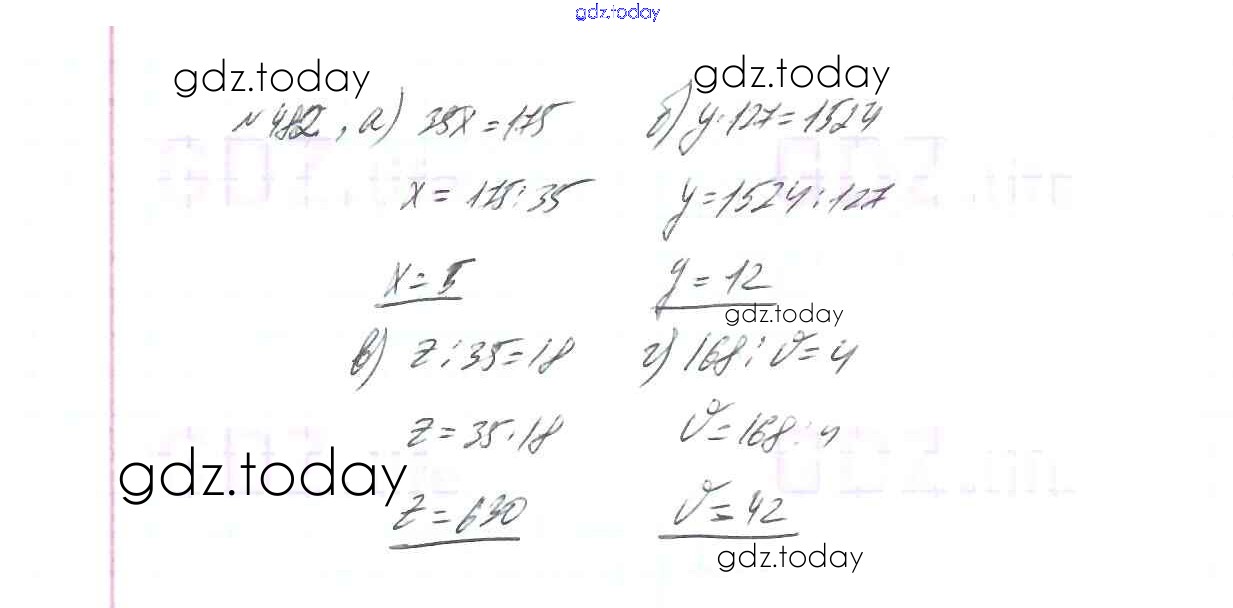 gdz.today
gdz.today gdz.today
№ 482, а) 35x = 175 б) y · 127 = 1524
x = 175 : 35 y = 1524 : 127
x = 5 y = 12
gdz.today
в) z : 35 = 18 г) 168 : v = 4
z = 35 · 18 v = 168 : 4
gdz.today
z = 630 v = 42
gdz.today